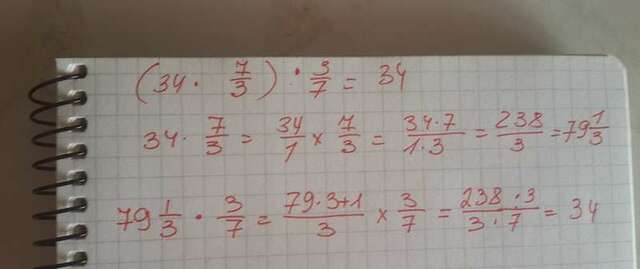 (34 · 7/3) · 3/7 = 34
34 · 7/3 = 34/1 × 7/3 = 34·7/1·3 = 238/3 = 79 1/3
79 1/3 · 3/7 = 79·3+1/3 × 3/7 = 238·3/3·7 = 34